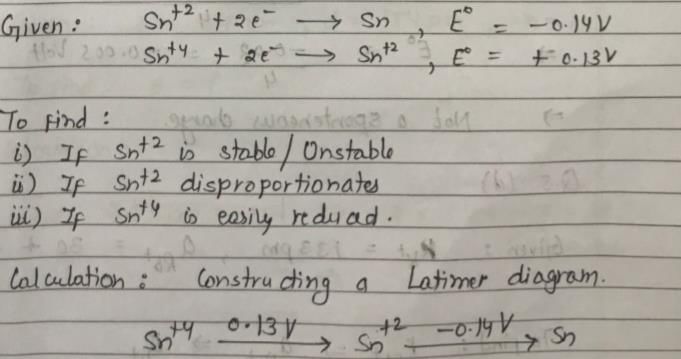 Given : Sn⁺² + 2e⁻ ⟶ Sn , E° = -0.14 V
Sn⁺⁴ + 2e⁻ ⟶ Sn⁺² , E° = + 0.13 V
To Find :
i) If Sn⁺² is stable / Unstable
ii) If Sn⁺² disproportionates
iii) If Sn⁺⁴ is easily reduad .
Calculation : Constructing a Latimer diagram.
Sn⁺⁴ —0.13 V→ Sn⁺² —-0.14 V→ Sn